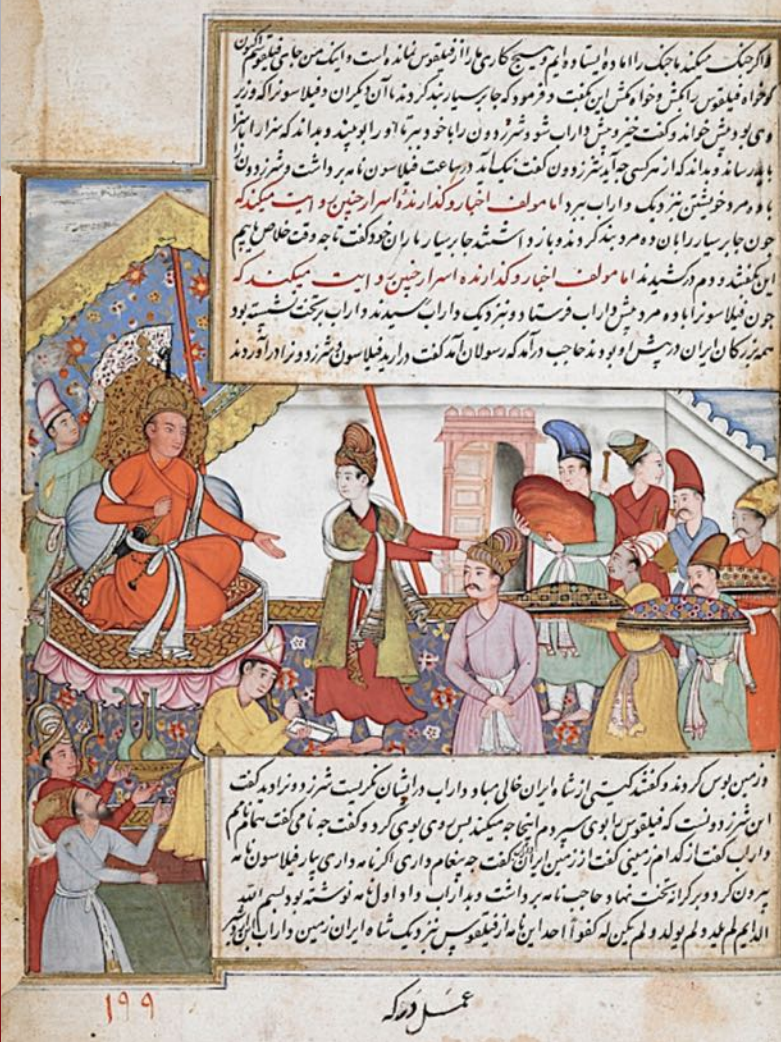 اگر جنگ میکند ما جنگ را اماده ایستاده ایم و هیچ کاری ما را از فیلقوس نمانده است و اینک من جای فیلقوسم اکنون
خواه فیلقوس را بکش و خواه مکش این بگفت و فرمود که جابر سیار بند کردند با آن دیگران و فیلاسونرا که وزیر
وی بود پیش خواند و گفت خیز و پیش داراب شو و شرزدون را با خود ببر تا او را بوبیند و بداند که
رساند و بداند که از هر کسی چه آید شرزدون گفت نیک آید در ساعت فیلاسون نامه برداشت و شرزدون را
با ده مرد خویشتن نزدیک داراب ببرد اما مولف اخبار و گذارندۀ اسرار چنین روایت میکند که
چون جابر سیار را بان ده مرد بند کردند و باز داشتند جابر سیار یاران خود گفت تا چه وقت خلاص یابیم
این بگفتند و دم درکشیدند اما مولف اخبار و گذارنده اسرار چنین روایت میکند که
چون فیلاسونرا با ده مرد پیش داراب فرستاد و نزدیک داراب رسیدند داراب بر تخت نشسته بود
همه بزرکان ایران در پیش او بودند حاجب درآمد که رسولان آمد گفت درارید فیلاسون و شرزدونرا درآوردند
و زمین بوس کردند و گفتند گیتی از شاه ایران خالی مباد داراب در ایشان نگریست شرزدونرا دید گفت
این شرزدونست که فیلقوس را بوی سپردم اینجا چه میکند پس روی بوی کرد و گفت چه نامی گفت
داراب گفت از کدام زمینی گفت از زمین ایران گفت چه پیغام داری اگر نامه داری بیار فیلاسون نامه
بیرون کرد و بر کرانه تخت نهاد حاجب نامه برداشت و بداراب داد اول نامه نوشته بود بسم الله
الدایم لم یلد و لم یولد و لم یکن له کفوا احد این نامه از فیلقوس نزدیک شاه ایران زمین داراب
عمل
۱۹۹